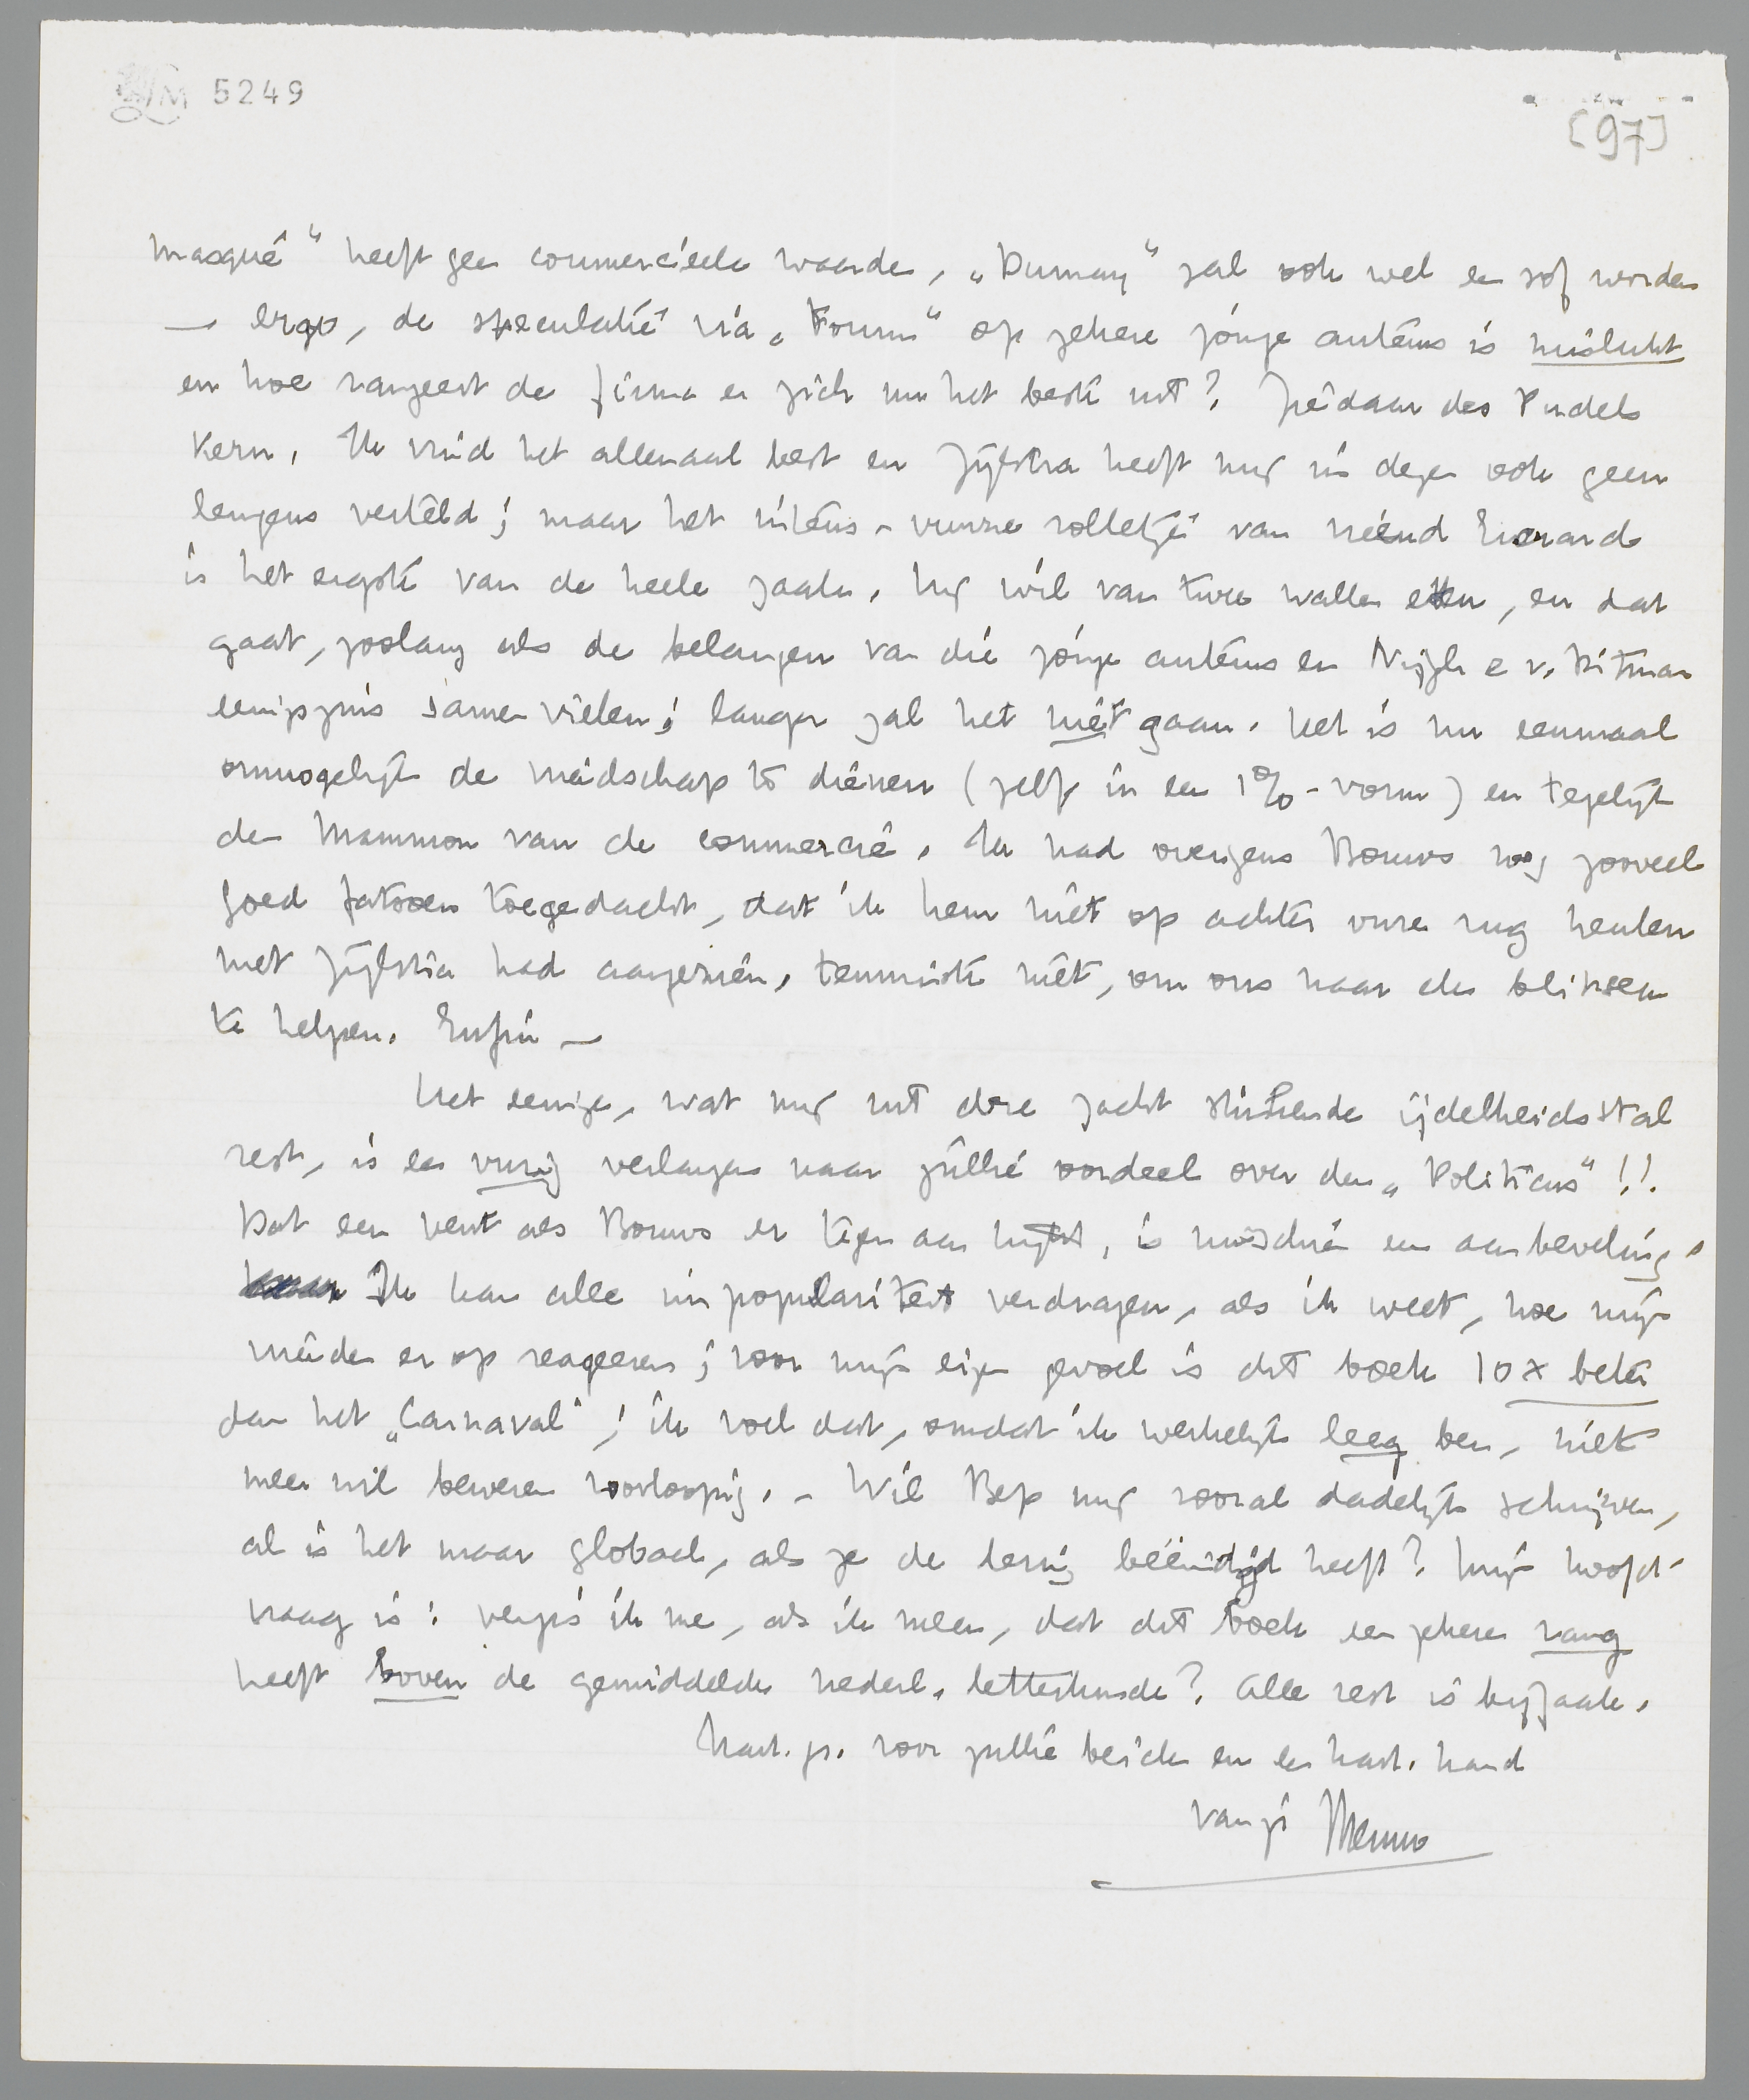 5249
[97]
masqué" heeft geen commercieele waarde, „Dumay" zal ook wel een sof worden
— ergo, de speculatie via „Forum" op zekere jonge auteurs is mislukt
en hoe rangeert de firma er zich nu het beste uit? Ziedaar des Pudels
Kern. Ik vind het allemaal best en Zijlstra heeft mij in dezen ook geen
leugens verteld; maar het intens-vunze rolletje van vriend Everard
is het ergste van de heele zaak. Hij wil van twee wallen eten, en dat
gaat, zoolang als de belangen van die jonge auteurs en Nijgh e v. Ditmar
eenigszins samen vielen; langer zal het niet gaan. Het is nu eenmaal
onmogelijk de vriendschap te dienen (zelfs in een 1%-vorm) en tegelijk
den Mammon van de commercie. Ik had overigens Bouws nog zooveel
goed fatsoen toegedacht, dat ik hem niet op achter onze rug heulen
met Zijlstra had aangezien, tenminste niet, om ons naar den bliksem
te helpen. Enfin —
Het eenige, wat mij uit deze zacht stinkende ijdelheidsstal
rest, is een vurig verlangen naar jullie oordeel over den „Politicus"!!
Dat een vent als Bouws er tegen aan hijgt, is misschien een aanbeveling.
Ik kan alle impopulariteit verdragen, als ik weet, hoe mijn
vrienden er op reageeren; voor mijn eigen gevoel is dit boek 10 x beter
dan het „Carnaval"; ik voel dat, omdat ik werkelijk leeg ben, niets
meer wil beweren voorloopig. – Wil Bep mij vooral dadelijk schrijven,
al is het maar globaal, als ze de lezing beëindigd heeft? Mijn hoofd-
vraag is: vergis ik me, als ik meen, dat dit boek een zekeren rang
heeft boven de gemiddelde nederl. letterkunde? Alle rest is bijzaak.
Hart. gr. voor jullie beiden en een hart. hand
van je Menno